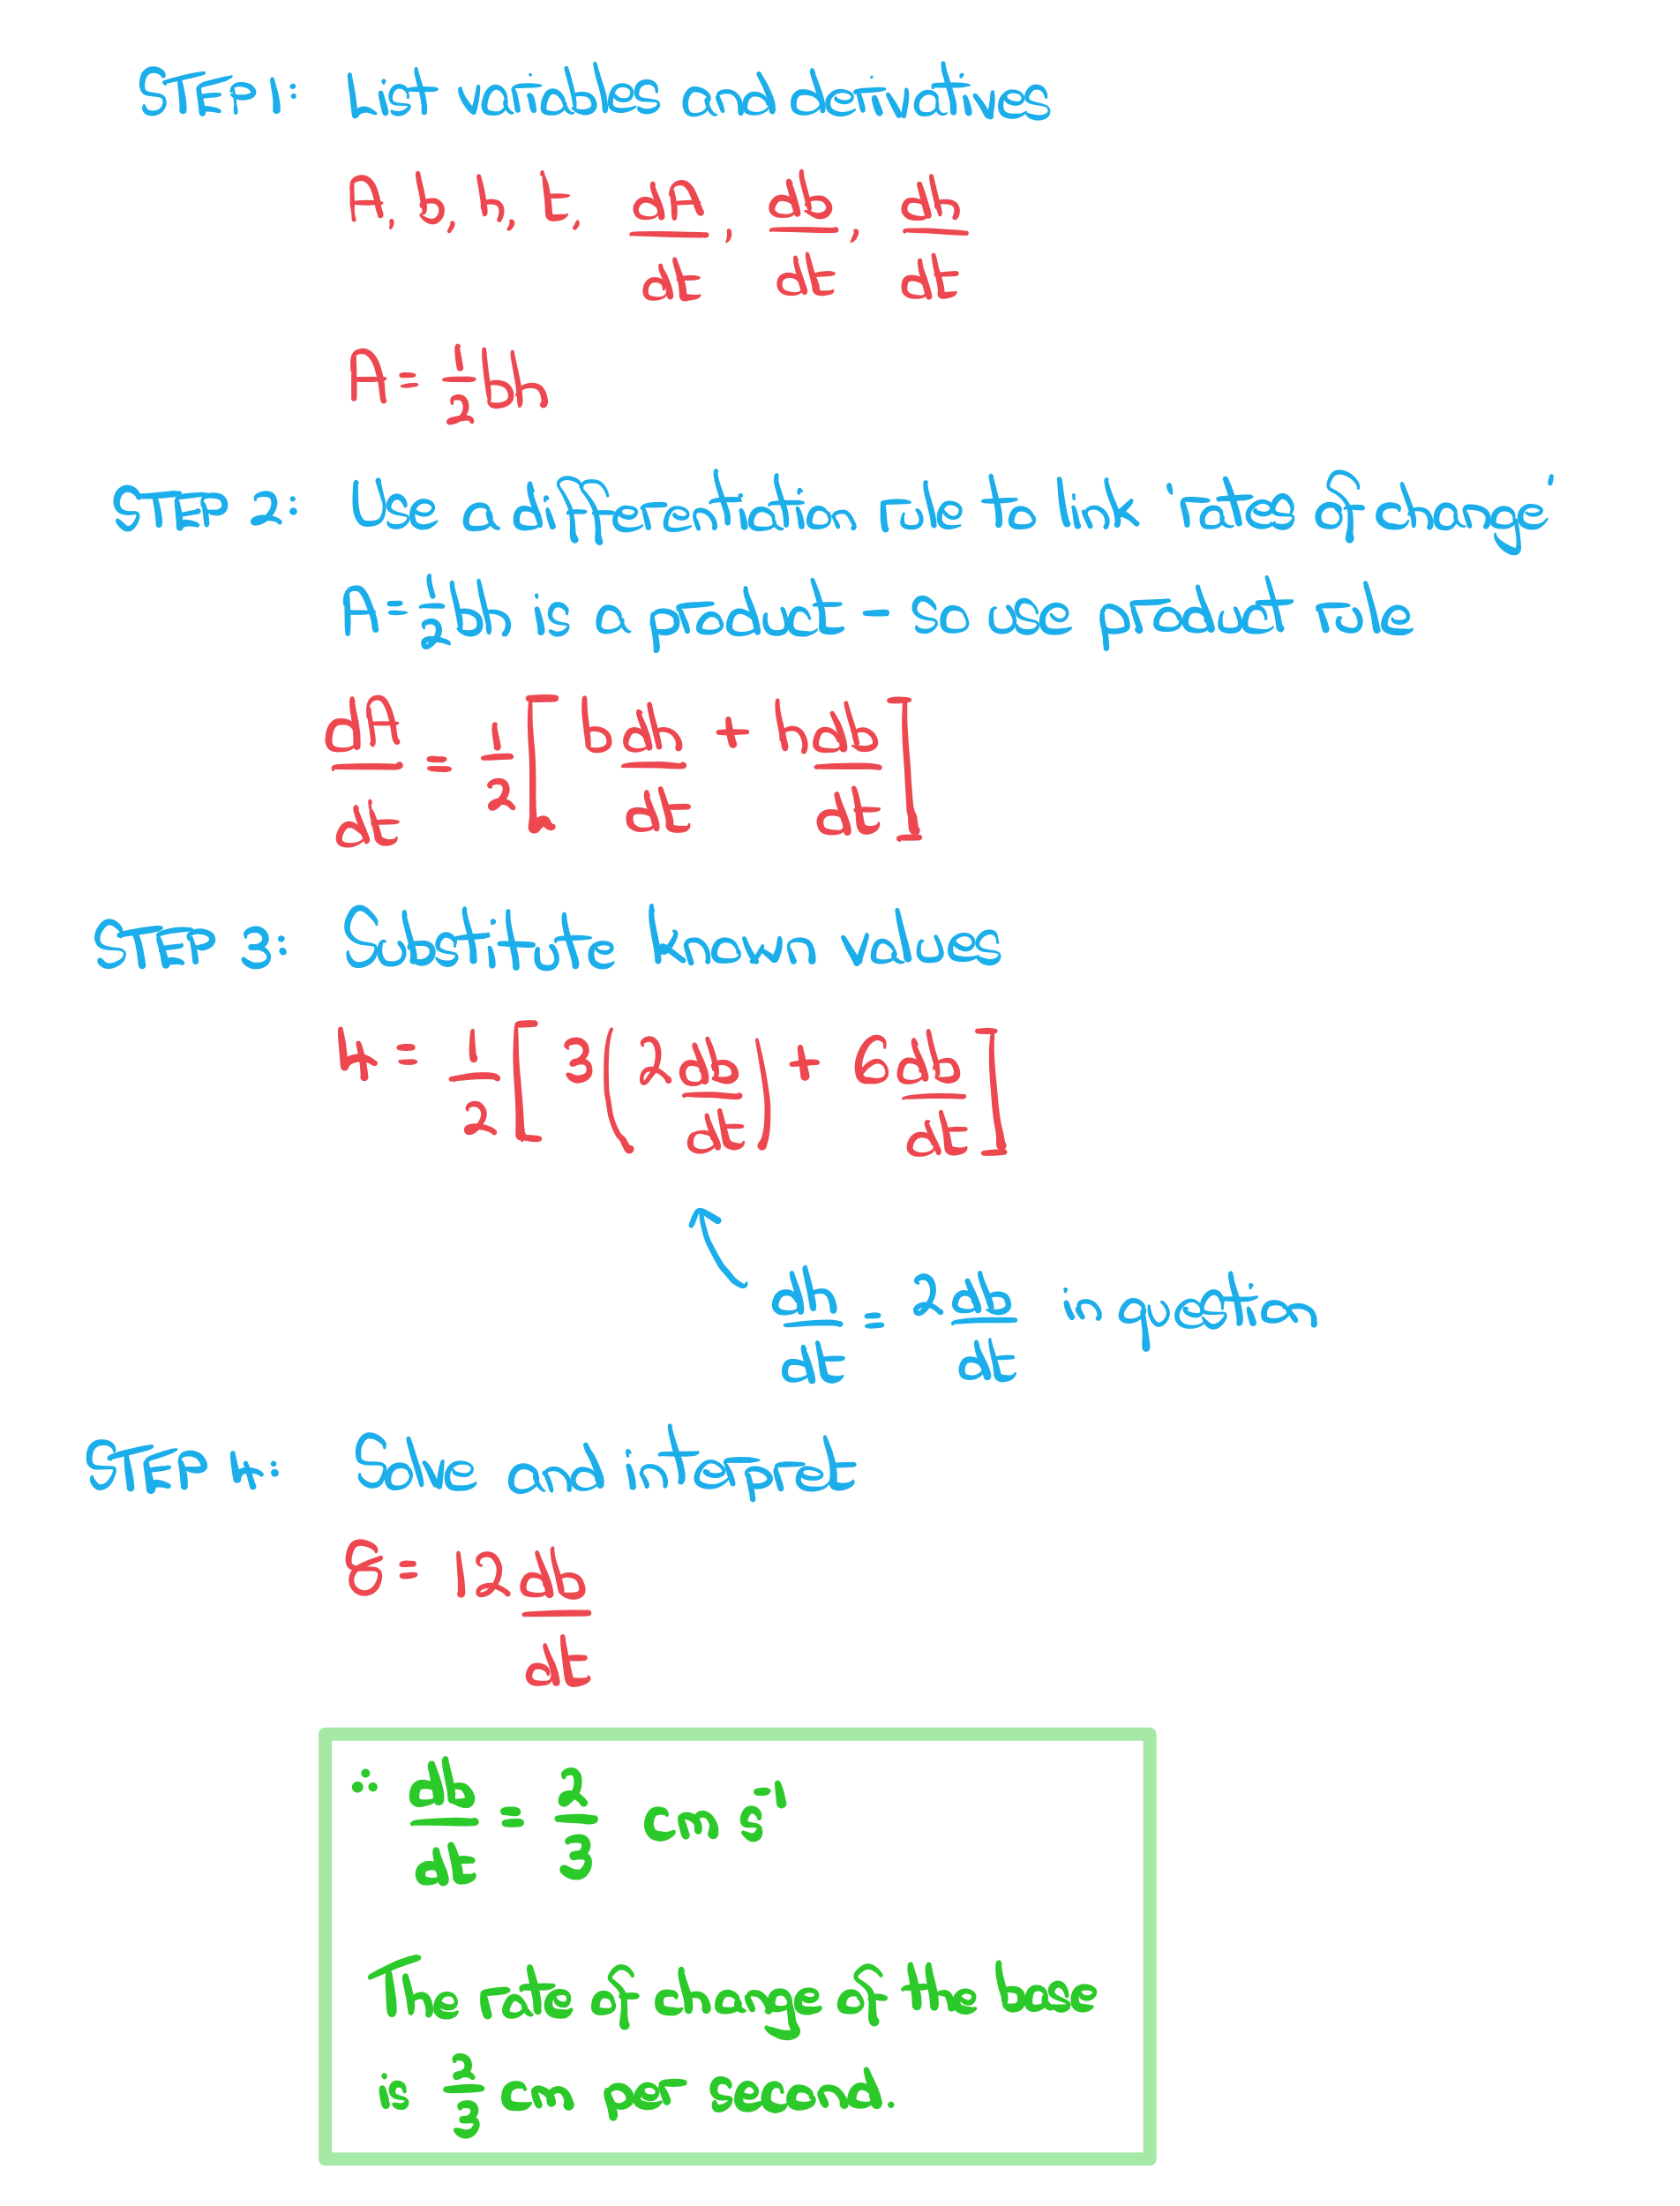 STEP 1: List variables and derivatives
A, b, h, t, dA/dt, db/dt, dh/dt
A = 1/2 bh
STEP 2: Use a differentiation rule to link 'rates of change'
A = 1/2 bh is a product - so use product rule
dA/dt = 1/2 [ b dh/dt + h db/dt ]
STEP 3: Substitute known values
4 = 1/2 [ 3 ( 2 db/dt ) + 6 db/dt ]
dh/dt = 2 db/dt in question
STEP 4: Solve and interpret
8 = 12 db/dt
∴ db/dt = 2/3 cm s⁻¹
The rate of change of the base
is 2/3 cm per second.